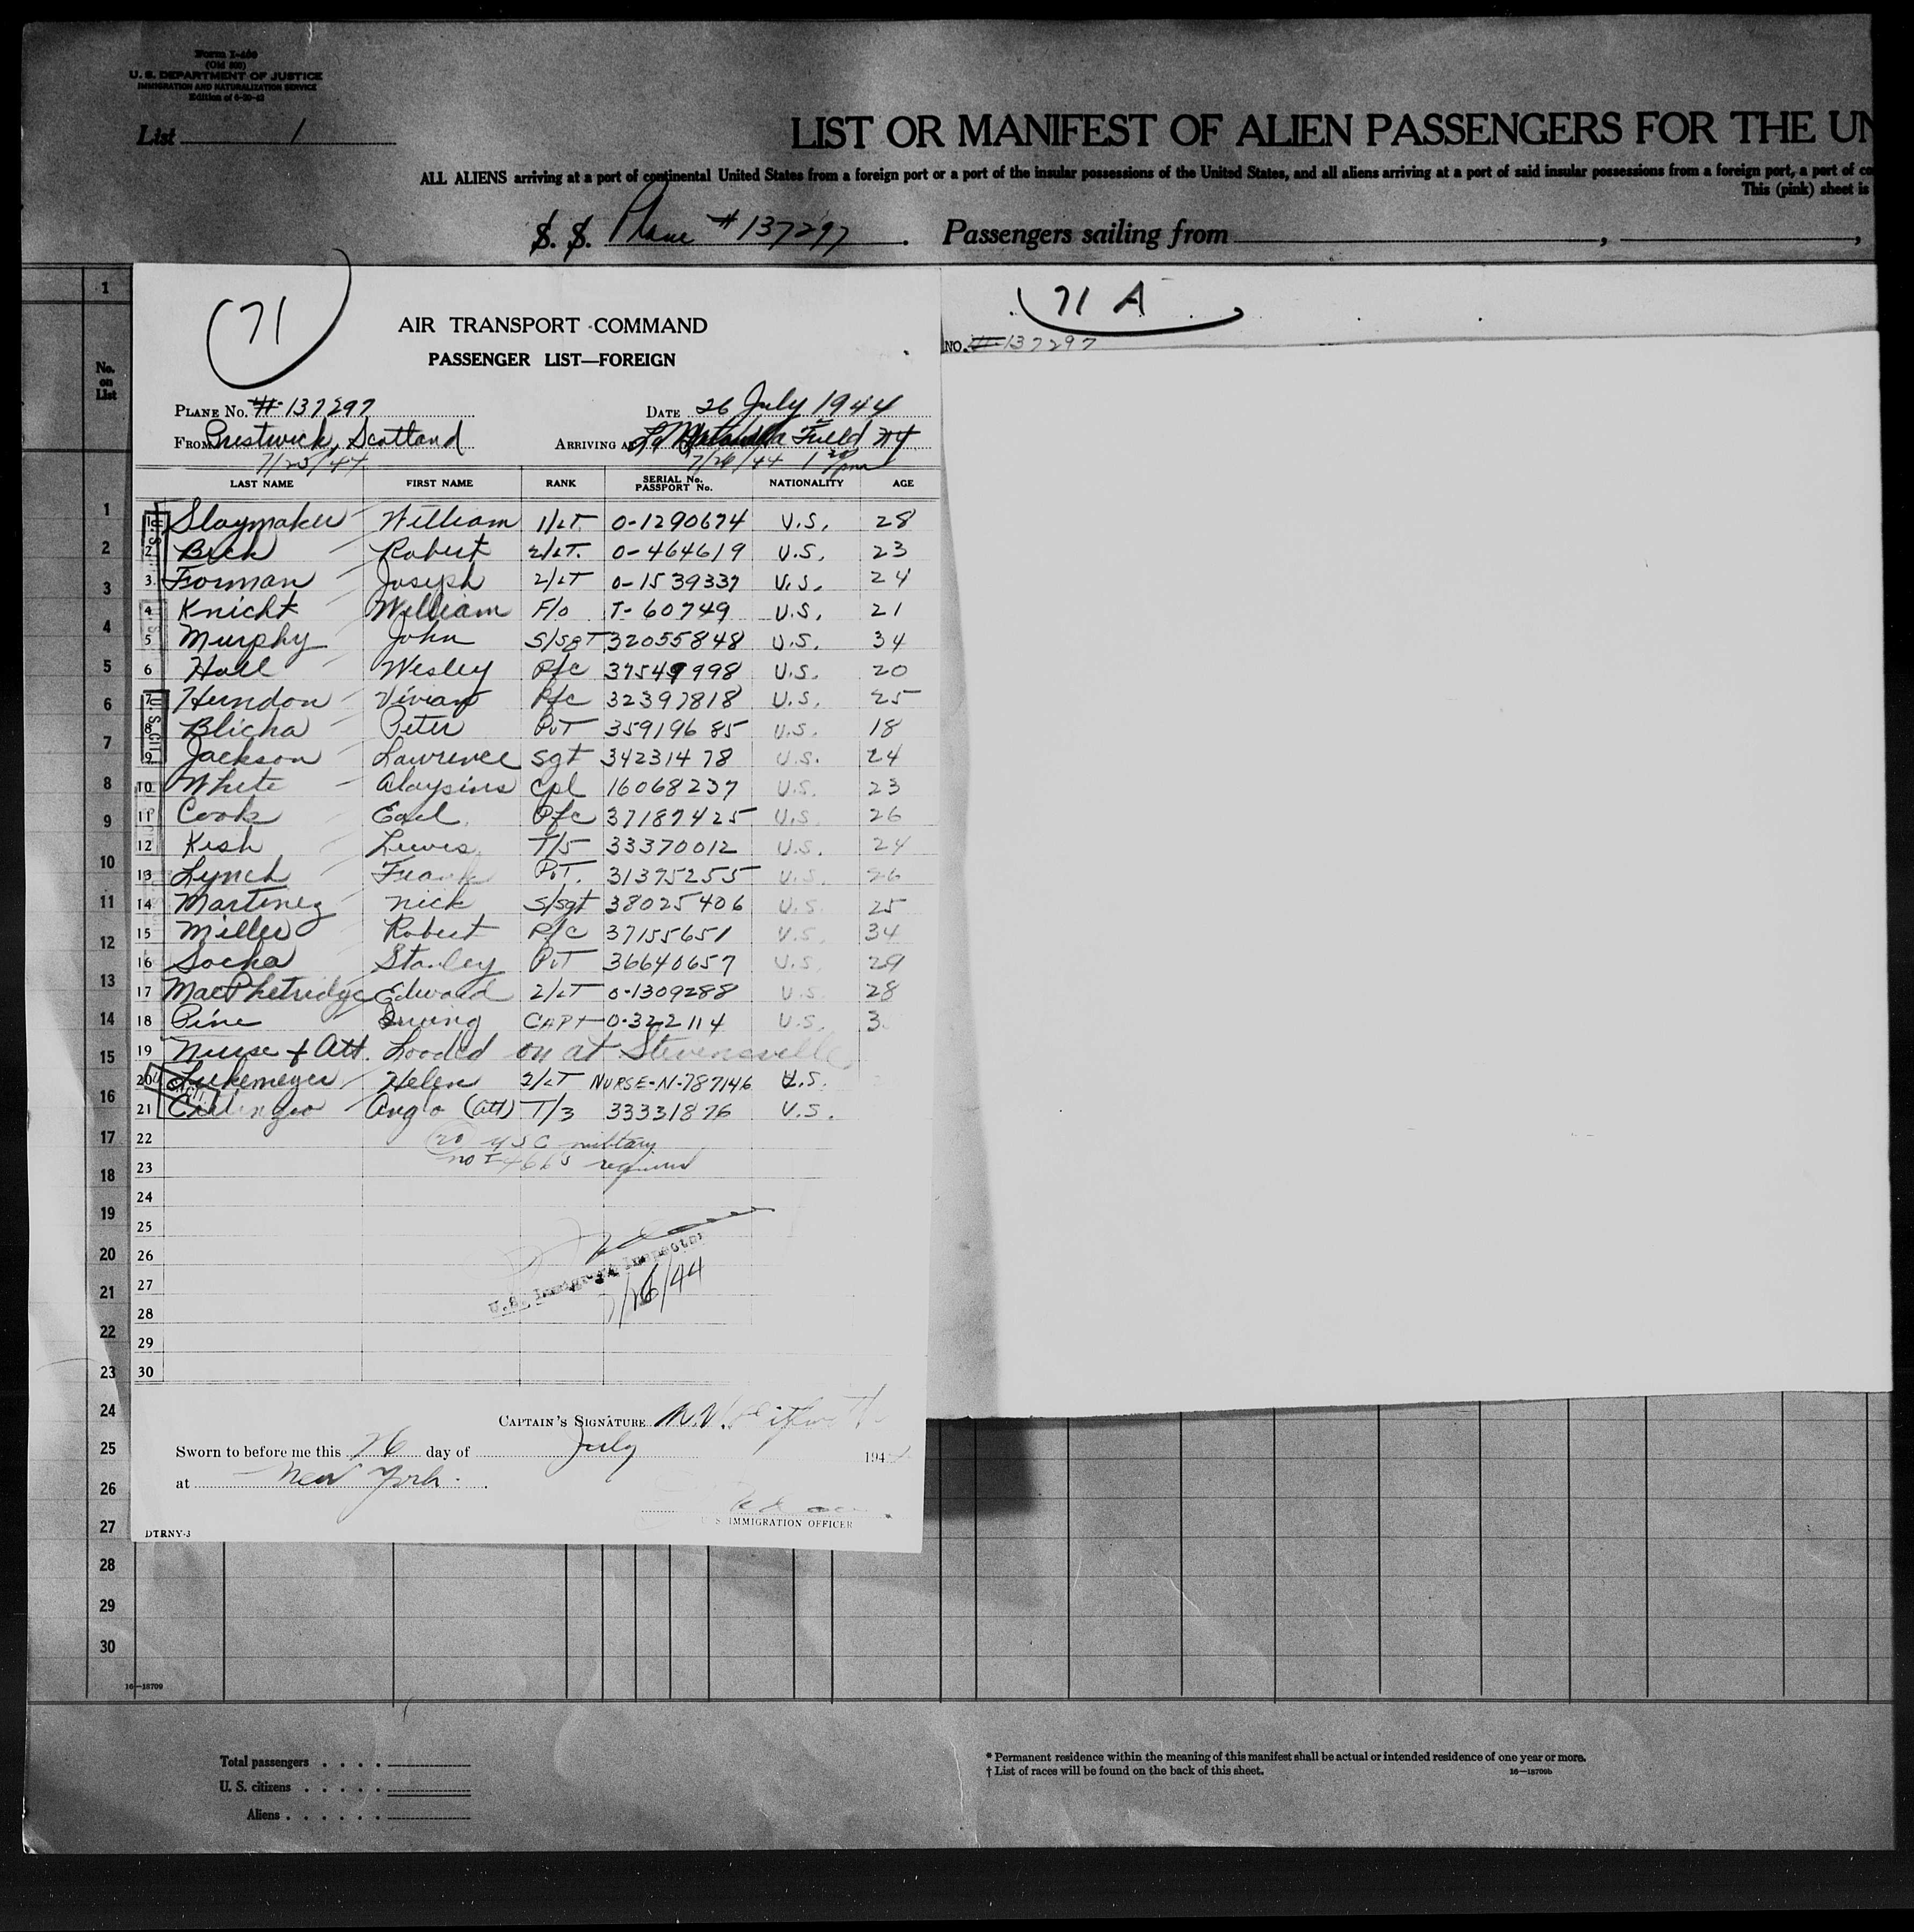 Form I-466
(Old 500)
U. S. DEPARTMENT OF JUSTICE
IMMIGRATION AND NATURALIZATION SERVICE
List 1
LIST OR MANIFEST OF ALIEN PASSENGERS FOR THE UN
ALL ALIENS arriving at a port of continental United States from a foreign port or a port of the insular possessions of the United States, and all aliens arriving at a port of said insular possessions from a foreign port, a port of co
This (pink) sheet is
S. S. Plane # 137297. Passengers sailing from , ,
71
71 A
AIR TRANSPORT COMMAND
NO. # 137297
PASSENGER LIST—FOREIGN
PLANE NO. # 137297 DATE 26 July 1944
FROM Prestwick, Scotland ARRIVING AT La Field NY
7/23/44 7/26/44 1 pm
No. on List
LAST NAME FIRST NAME RANK SERIAL No. PASSPORT No. NATIONALITY AGE
1 Slaymaker William 1/LT 0-1290674 U.S. 28
2 Robert 2/LT. 0-464619 U.S. 23
3 Forman Joseph 2/LT 0-1539337 U.S. 24
4 Knicht William F/O T-60749 U.S. 21
5 Murphy John S/SGT 32055848 U.S. 34
6 Hall Wesley Pfc 37549998 U.S. 20
7 Herndon Vivian Pfc 32397818 U.S. 25
8 Blicha Peter PVT 35919685 U.S. 18
9 Jackson Lawrence Sgt 34231478 U.S. 24
10 White Aloysius Cpl 16068237 U.S. 23
11 Cook Earl Pfc 37187425 U.S. 26
12 Kish Lewis T/5 33370012 U.S. 24
13 Lynch Frank PVT. 31375255 U.S. 26
14 Martinez Nick S/Sgt 38025406 U.S. 25
15 Miller Robert Pfc 37155651 U.S. 34
16 Socha Stanley PVT 36640657 U.S. 29
17 MacPhetridge Edward 2/LT 0-1309288 U.S. 28
18 Pine Irving CAPT 0-322114 U.S. 3
19 Nurse & Att. Loaded on at Stevensville
20 Lukemeyer Helen 2/LT NURSE-N-787146 U.S.
21 Anglo (Att) T/3 33331876 U.S.
22 20 USC military
23 no I-466's required
24
25
26
27
28
29
30
U.S. Immigrant Inspector
7/26/44
CAPTAIN'S SIGNATURE
Sworn to before me this 26 day of July 194
at New York.
U S IMMIGRATION OFFICER
DTRNY-3
16—18709
Total passengers . . . .
U. S. citizens . . . . .
Aliens . . . . . .
* Permanent residence within the meaning of this manifest shall be actual or intended residence of one year or more.
† List of races will be found on the back of this sheet. 16—18709b